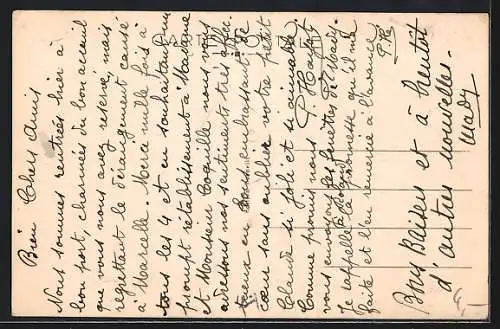 Bien Chers Amis
Nous sommes rentrées hier à
bon port, charmés du bon accueil
que vous nous avez reservé, mais
regrettant le dérangement causé
à Marcelle. Merci mille fois à
tous les 4 et en souhaitant un
prompt rétablissement à Madame
et Monsieur Coquille nous vous
adressons nos sentiments très affec.
tueux en vous embrassant de
cœur sans oublier votre petit
Claude si joli et si aimable
Comme promis nous
vous envoyons les fenêtres de
Je rappelle la promesse qu'il m'a
faite et l'en remercie à l'avance
P. H.
Bons Baisers et à bientôt
d'autres nouvelles.
Mady